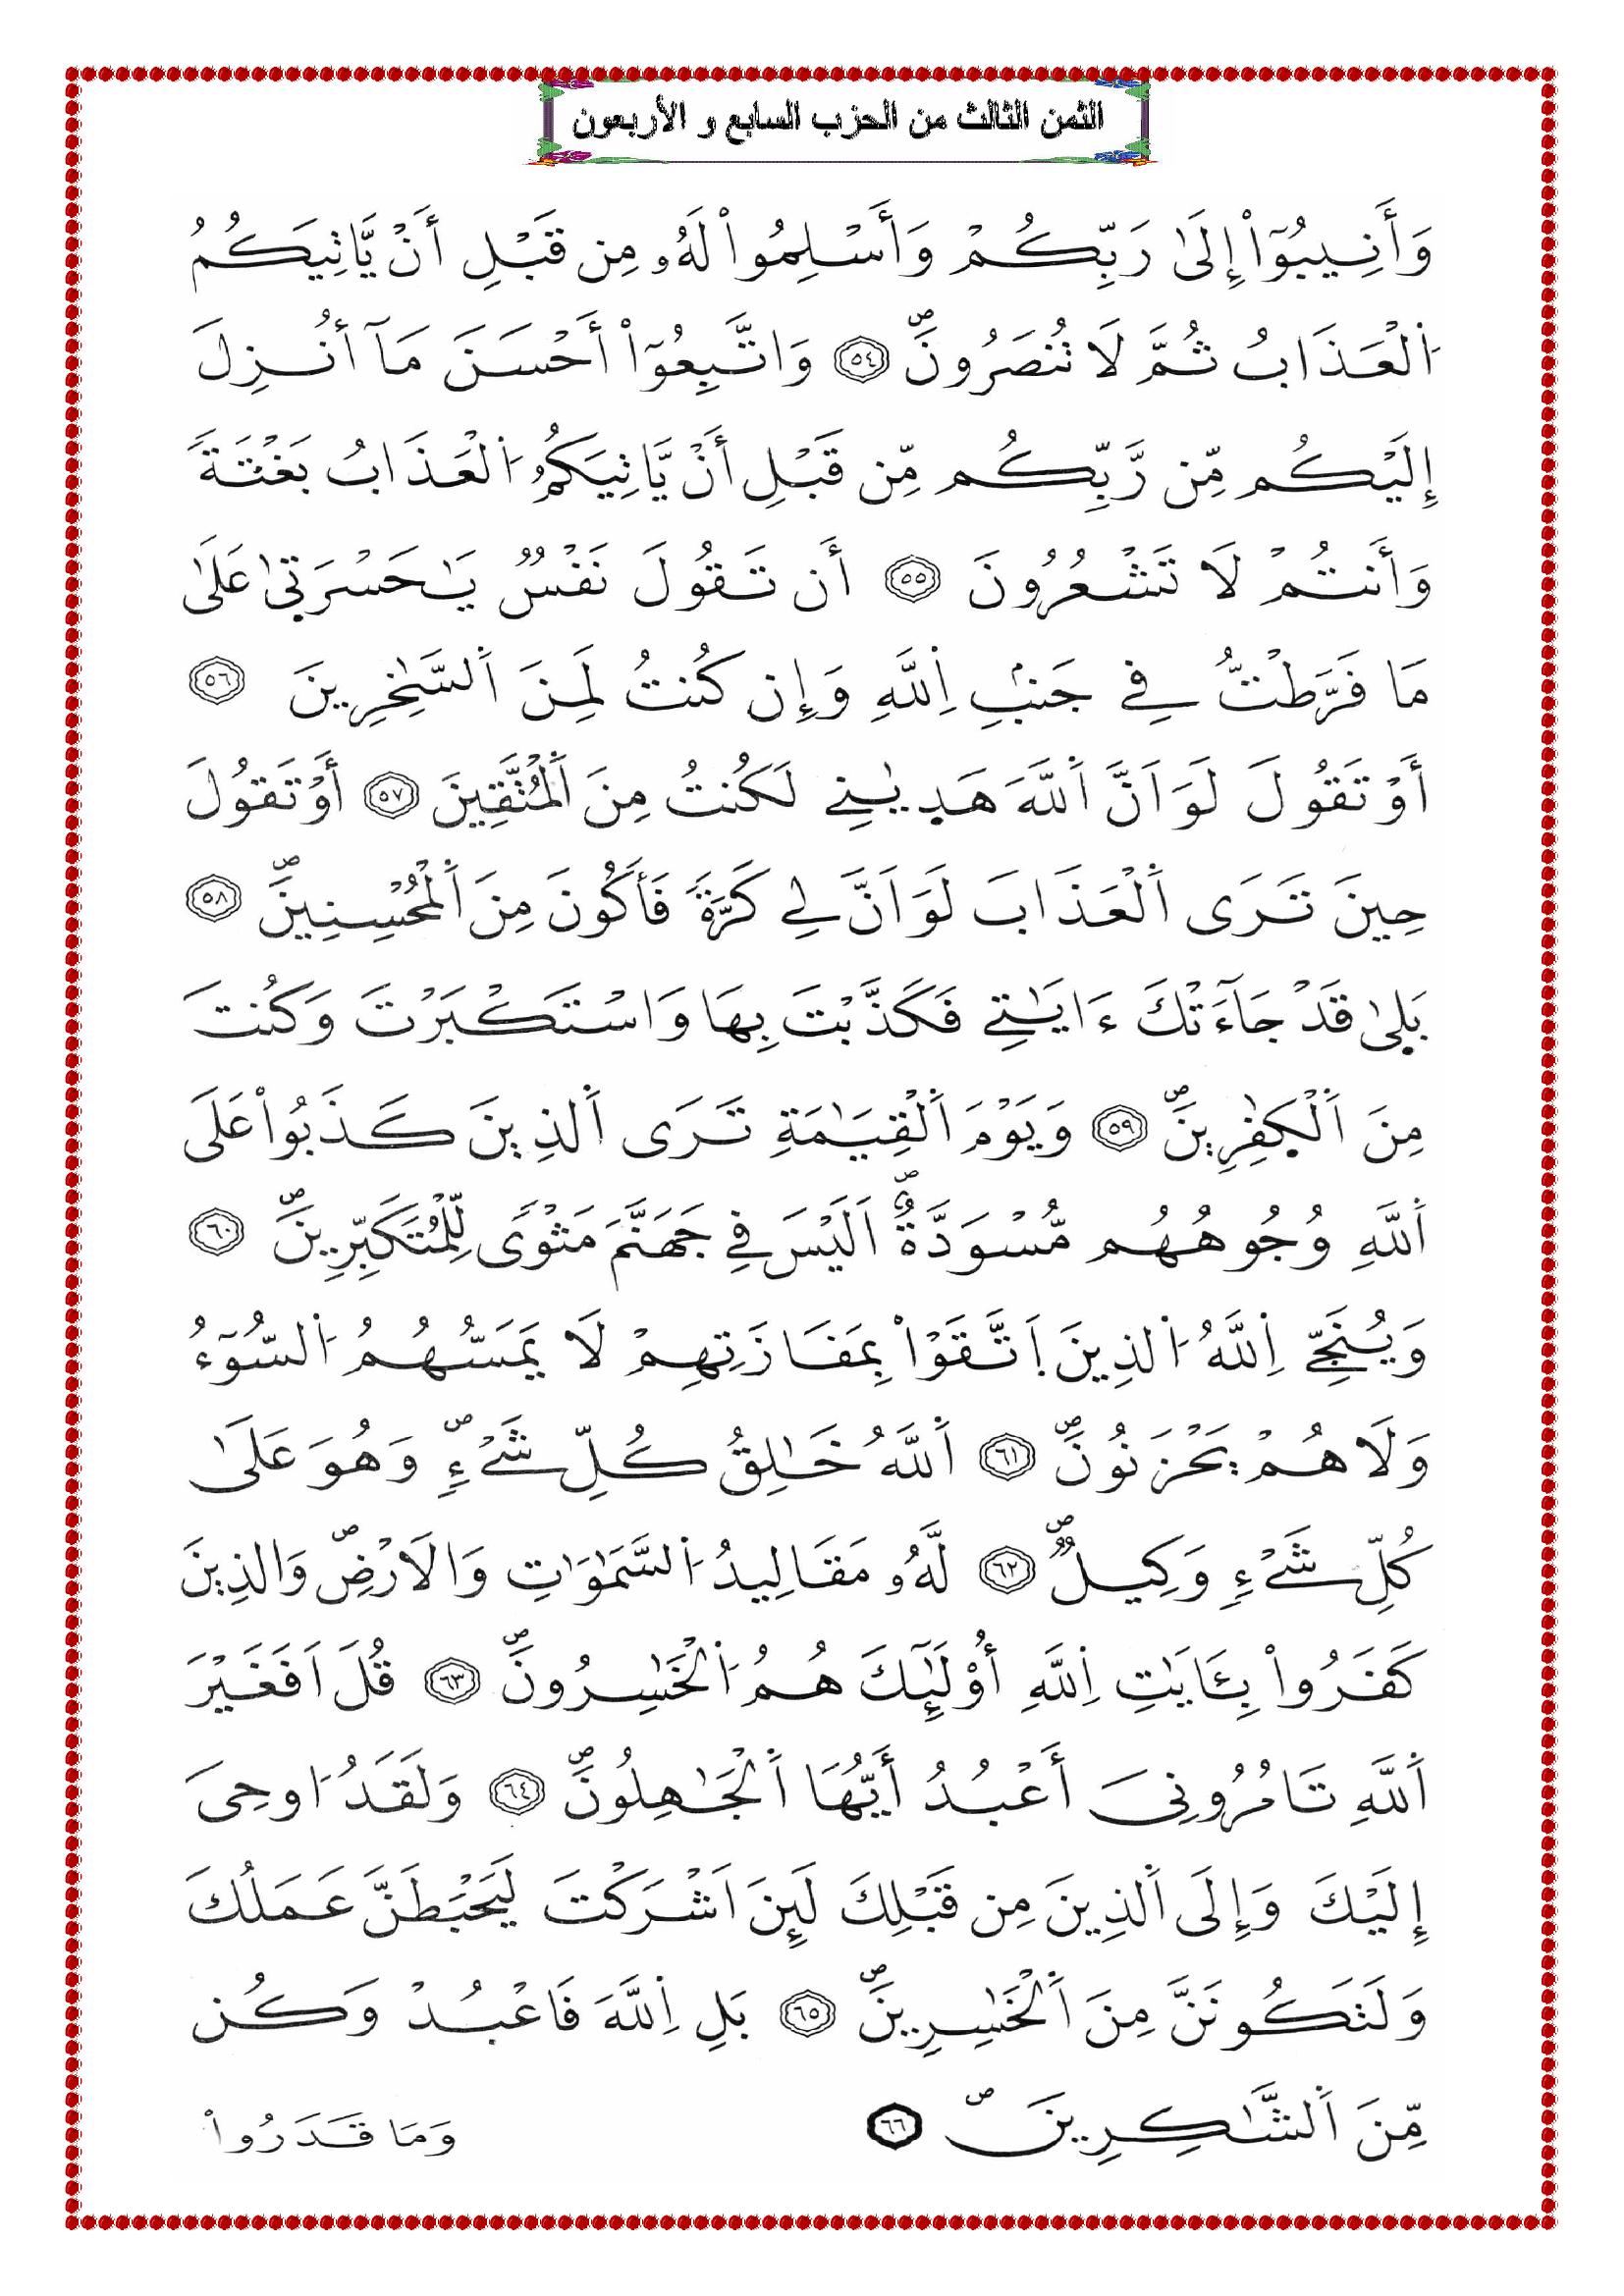 الثمن الثالث من الحزب السابع و الأربعون
وَأَنِيبُوٓاْ إِلَىٰ رَبِّكُمْ وَأَسْلِمُواْ لَهُۥ مِن قَبْلِ أَنْ يَّاتِيَكُمُ
اُ۬لْعَذَابُ ثُمَّ لَا تُنصَرُونَۖ ٥٤ وَاتَّبِعُوٓاْ أَحْسَنَ مَآ أُنزِلَ
إِلَيْكُم مِّن رَّبِّكُم مِّن قَبْلِ أَنْ يَّاتِيَكُمُ اُ۬لْعَذَابُ بَغْتَةً
وَأَنتُمْ لَا تَشْعُرُونَ ٥٥ أَن تَقُولَ نَفْسٌ يَٰحَسْرَتٜىٰ عَلَىٰ
مَا فَرَّطتُّ فِے جَنۢبِ اِ۬للَّهِ وَإِن كُنتُ لَمِنَ اَ۬لسَّٰخِرِينَ ٥٦
أَوْ تَقُولَ لَوَ اَنَّ اَ۬للَّهَ هَدٜيٰنِے لَكُنتُ مِنَ اَ۬لْمُتَّقِينَ ٥٧ أَوْ تَقُولَ
حِينَ تَرَى اَ۬لْعَذَابَ لَوَ اَنَّ لِے كَرَّةً فَأَكُونَ مِنَ اَ۬لْمُحْسِنِينَۖ ٥٨
بَلٜىٰ قَدْ جَآءَتْكَ ءَايَٰتِے فَكَذَّبْتَ بِهَا وَاسْتَكْبَرْتَ وَكُنتَ
مِنَ اَ۬لْكٰٜفِرِينَۖ ٥٩ وَيَوْمَ اَ۬لْقِيَٰمَةِ تَرَى اَ۬لذِينَ كَذَبُواْ عَلَى
اَ۬للَّهِ وُجُوهُهُم مُّسْوَدَّةٌۖ اَلَيْسَ فِے جَهَنَّمَ مَثْوىً لِّلْمُتَكَبِّرِينَۖ ٦٠
وَيُنَجِّے اِ۬للَّهُ اُ۬لذِينَ اَ۪تَّقَوْاْ بِمَفَازَتِهِمْ لَا يَمَسُّهُمُ اُ۬لسُّوٓءُ
وَلَا هُمْ يَحْزَنُونَۖ ٦١ اَ۬للَّهُ خَٰلِقُ كُلِّ شَےْءٖۖ وَهُوَ عَلَىٰ
كُلِّ شَےْءٖ وَكِيلٌۖ ٦٢ لَّهُۥ مَقَالِيدُ اُ۬لسَّمَٰوَٰتِ وَالَارْضِۖ وَالذِينَ
كَفَرُواْ بِـَٔايَٰتِ اِ۬للَّهِ أُوْلَٰٓئِكَ هُمُ اُ۬لْخَٰسِرُونَۖ ٦٣ قُلَ اَفَغَيْرَ
اَ۬للَّهِ تَامُرُونِيَ أَعْبُدُ أَيُّهَا اَ۬لْجَٰهِلُونَۖ ٦٤ وَلَقَدُ ا۟وحِيَ
إِلَيْكَ وَإِلَى اَ۬لذِينَ مِن قَبْلِكَ لَئِنَ اَشْرَكْتَ لَيَحْبَطَنَّ عَمَلُكَ
وَلَتَكُونَنَّ مِنَ اَ۬لْخَٰسِرِينَۖ ٦٥ بَلِ اِ۬للَّهَ فَاعْبُدْ وَكُن
مِّنَ اَ۬لشَّٰكِرِينَۖ ٦٦ وَمَا قَدَرُواْ